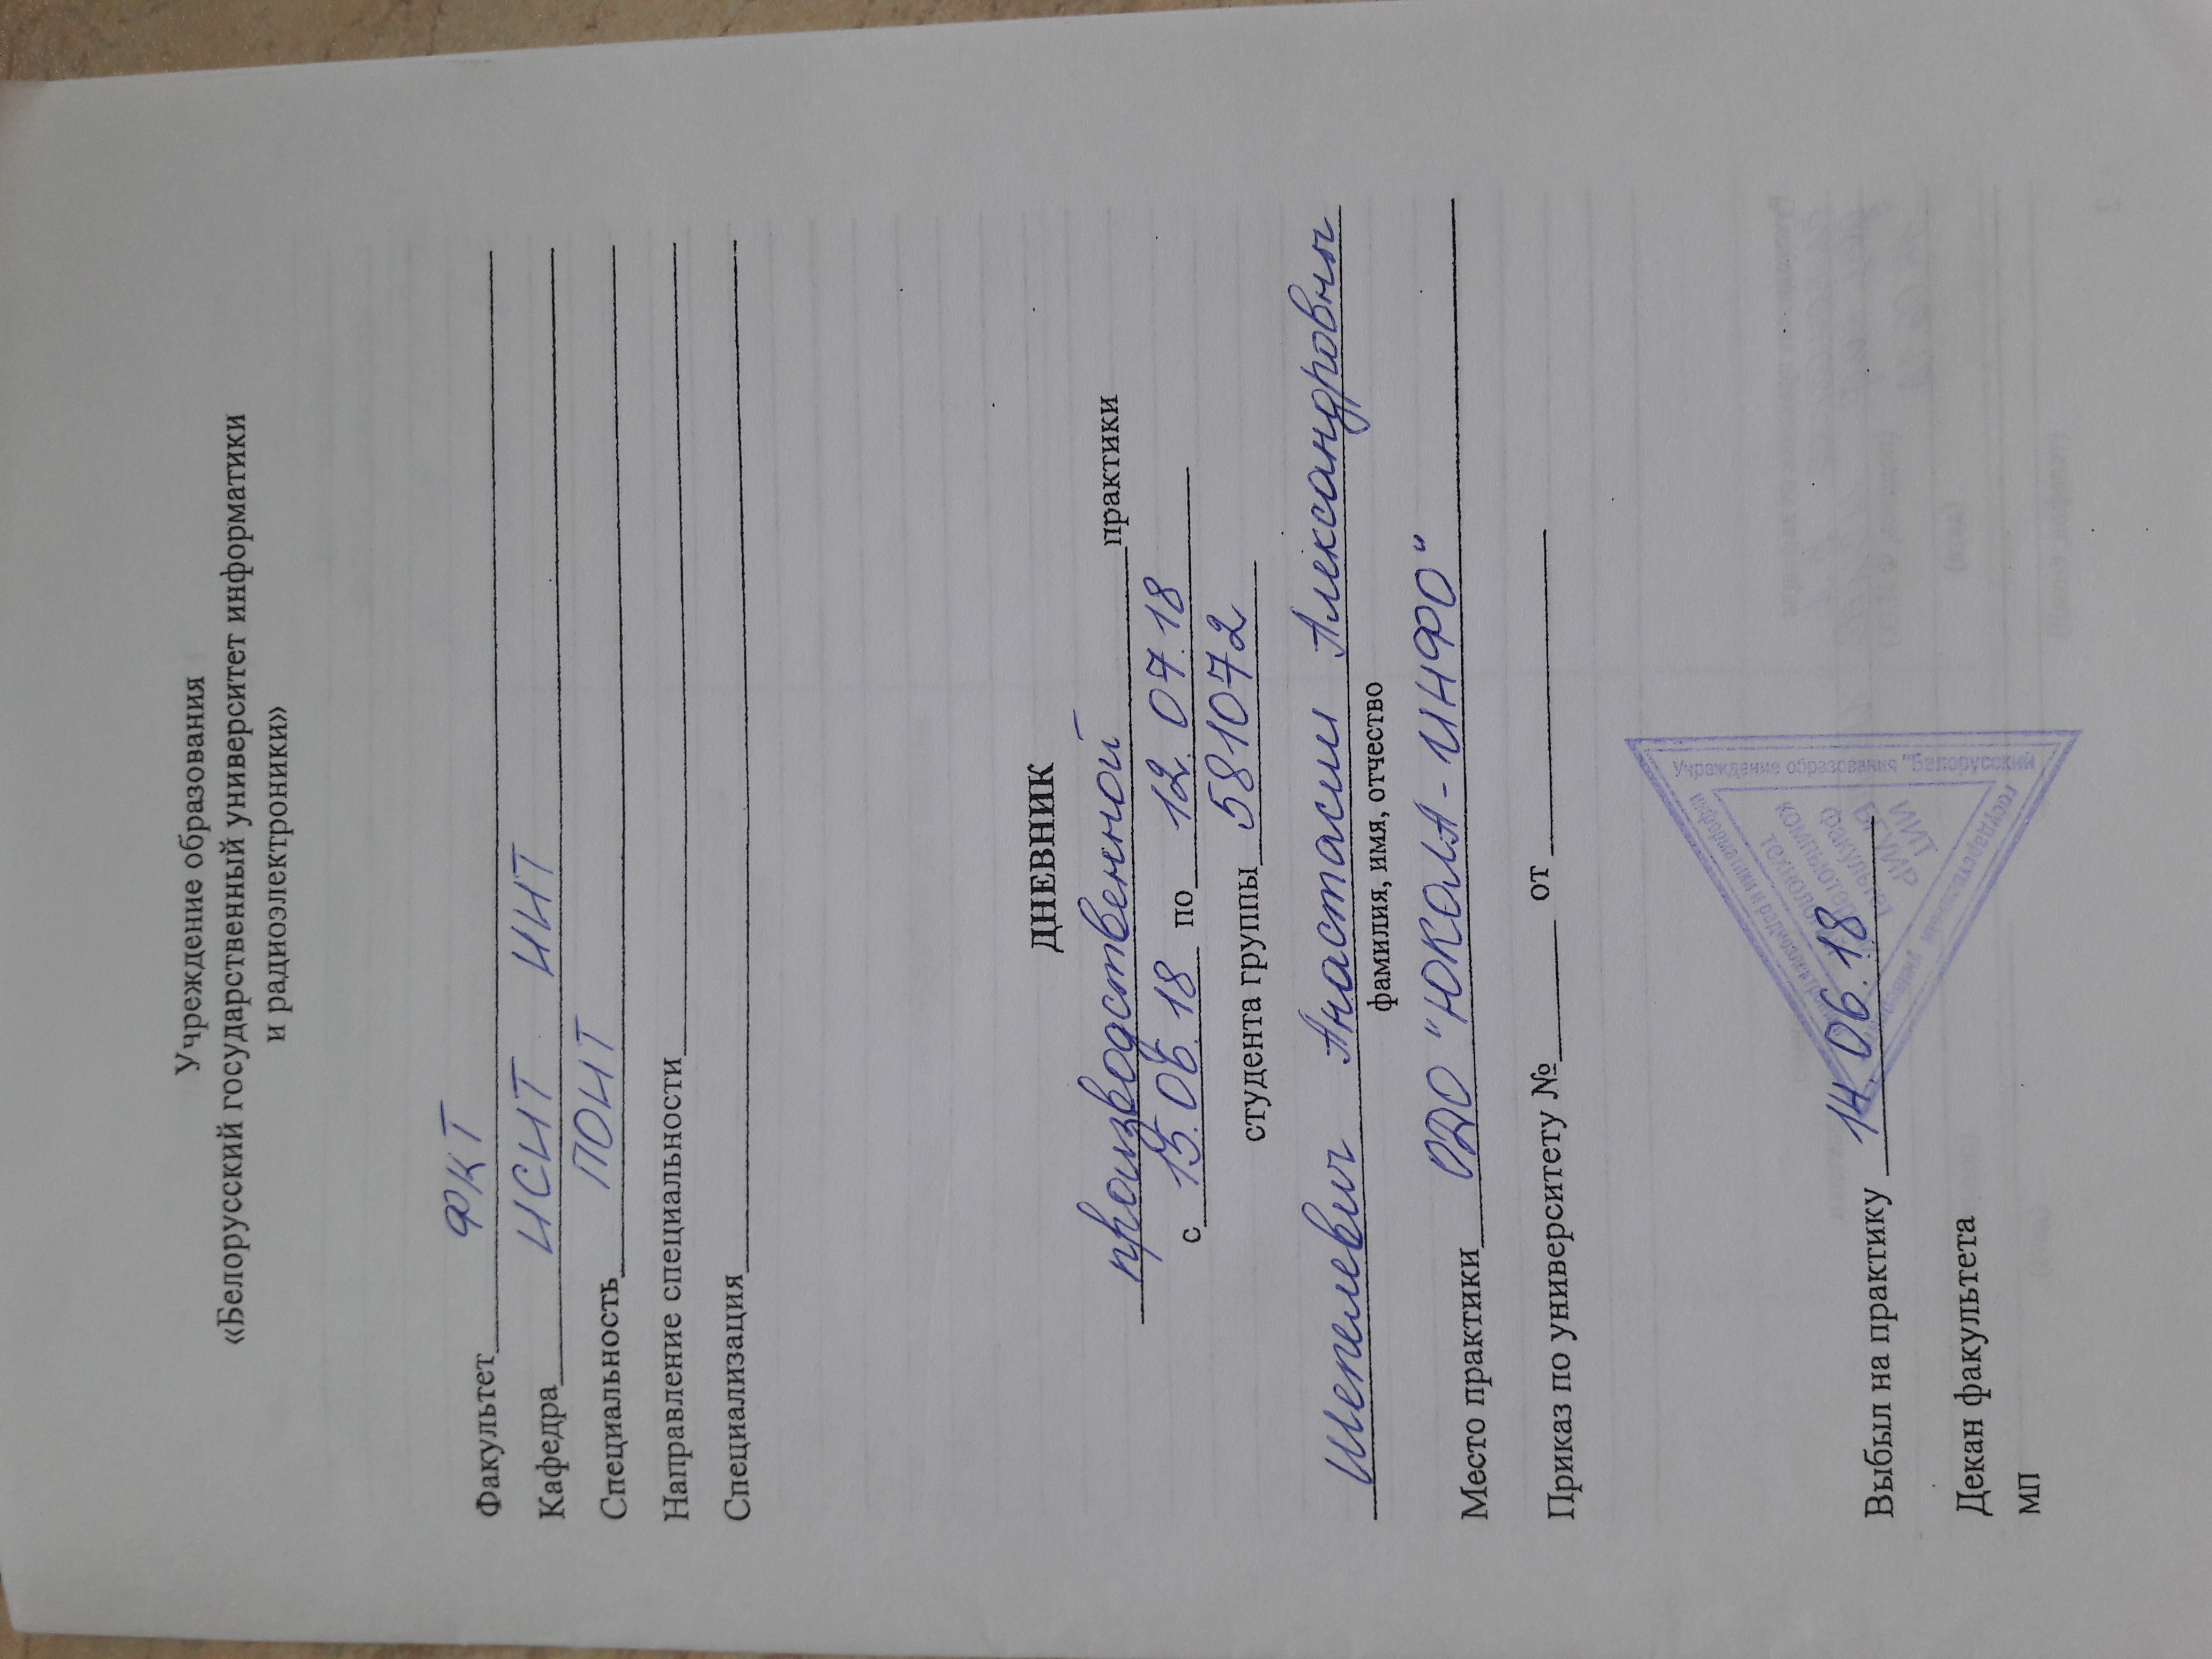 Учреждение образования
«Белорусский государственный университет информатики
и радиоэлектроники»
Факультет ФКТ
Кафедра ИСИТ ИИТ
Специальность ПОИТ
Направление специальности
Специализация
ДНЕВНИК
производственной практики
с 15.06.18 по 12.07.18
студента группы 581072
Шепелевич Анастасии Александровны
фамилия, имя, отчество
Место практики ОДО "ЮКОЛА-ИНФО"
Приказ по университету № от
Выбыл на практику 14.06.18
Декан факультета
МП
Учреждение образования "Белорусский
государственный университет
информатики и радиоэлектроники"
ИИТ
БГУИР
Факультет
компьютерных
технологий